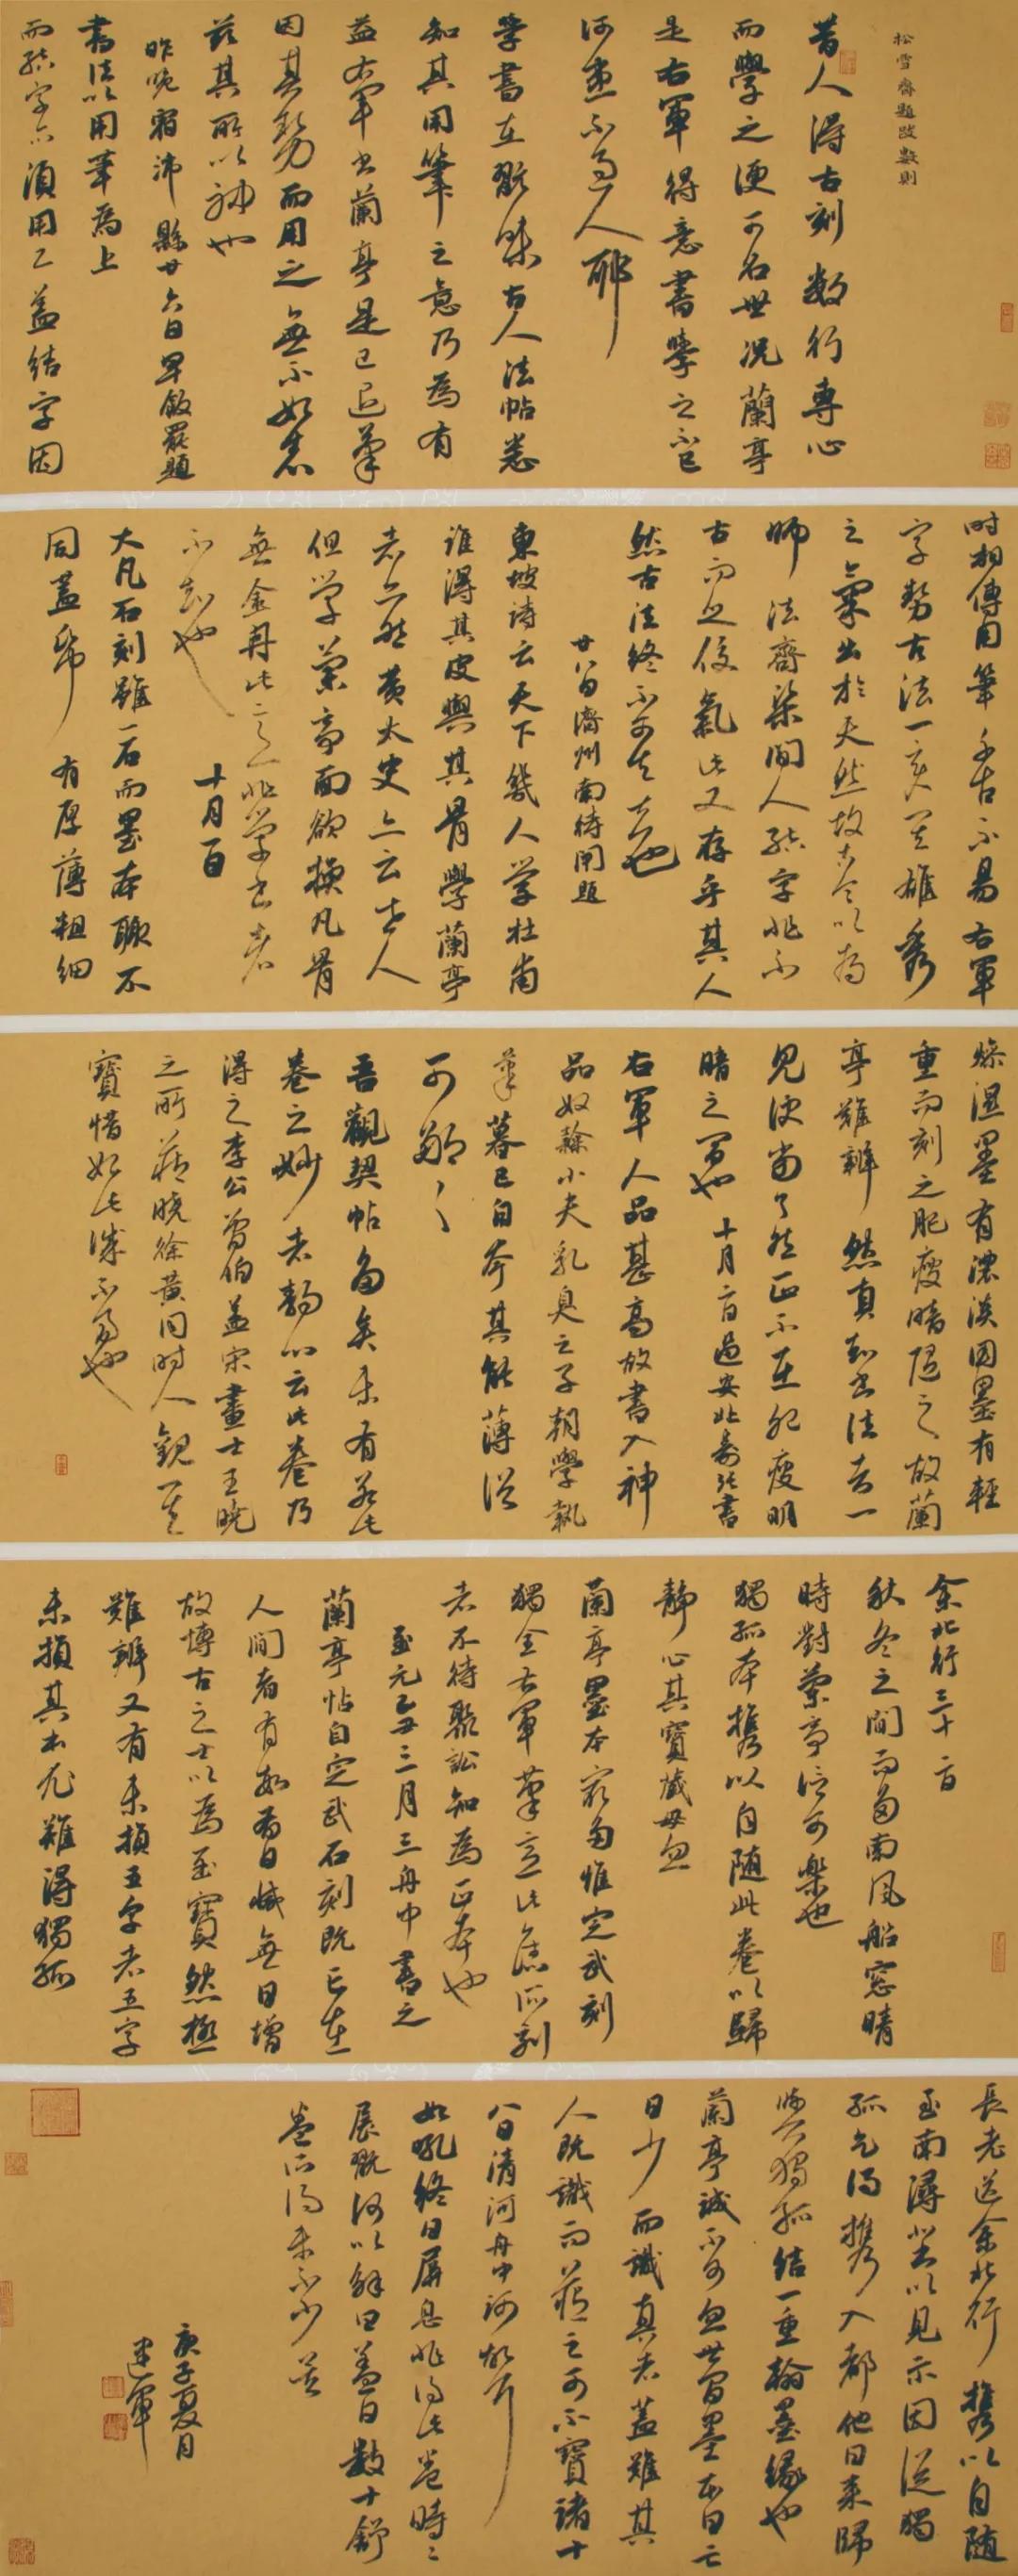 松雪齋題跋數則
昔人得古刻數行專心
而學之便可名世況蘭亭
是右軍得意書學之不已
何患不過人耶
學書在玩味古人法帖悉
知其用筆之意乃為有
益右軍書蘭亭是已退筆
因其勢而用之無不如志
茲其所以神也
昨晚宿沛縣廿六日早飯罷題
書法以用筆為上
而結字亦須用工蓋結字因
時相傳用筆千古不易右軍
字勢古法一變其雄秀
之氣出於天然故古今以為
師法齊梁間人結字非不
古而乏俊氣此又存乎其人
然古法終不可失也
廿八日濟州南待閘題
東坡詩云天下幾人學杜甫
誰得其皮與其骨學蘭亭
者亦然黃太史亦云世人
但學蘭亭面欲換凡骨
無金丹此意非學書者
不知也
十月一日
大凡石刻雖一石而墨本聊不
同蓋帋有厚薄粗細
燥濕墨有濃淡因墨有輕
重而刻之肥瘦暗隱之故蘭
亭難辨然真知書法者一
見便當了然正不在肥瘦明
暗之間也十月二日過安北壽張書
右軍人品甚高故書入神
品奴隸小夫乳臭之子朝學執
筆暮已自夸其能薄俗
可鄙〻
吾觀禊帖多矣未有若此
卷之妙者靜心云此卷乃
得之李公曾伯蓋宋畫士王曉
之所藏曉徐黃同時人觀其
寶惜如此誠不易也
余北行三十二日
秋冬之間而多南風船窓晴
時對蘭亭信可樂也
獨孤本攜以自隨此卷以歸
靜心其寶藏毋忽
蘭亭墨本最多惟定武刻
獨全右軍筆意此舊所刻
者不待聚訟知為正本也
至元己丑三月三舟中書之
蘭亭帖自定武石刻既亡在
人間者有數有日減無日增
故博古之士以為至寶然極
難辨又有未損五字者五字
未損其本尤難得獨孤
長老送余北行攜以自隨
至南潯出以見示因從獨
孤乞得攜入都他日來歸
與獨孤結一重翰墨緣也
蘭亭誠不可忽世間墨本日亡
日少而識真者蓋難其
人既識而藏之可不寶諸十
八日清河舟中河聲
如吼終日屏息非得此卷時〻
展玩何以解日蓋日數十舒
卷所得未不少矣
庚子夏月
建軍